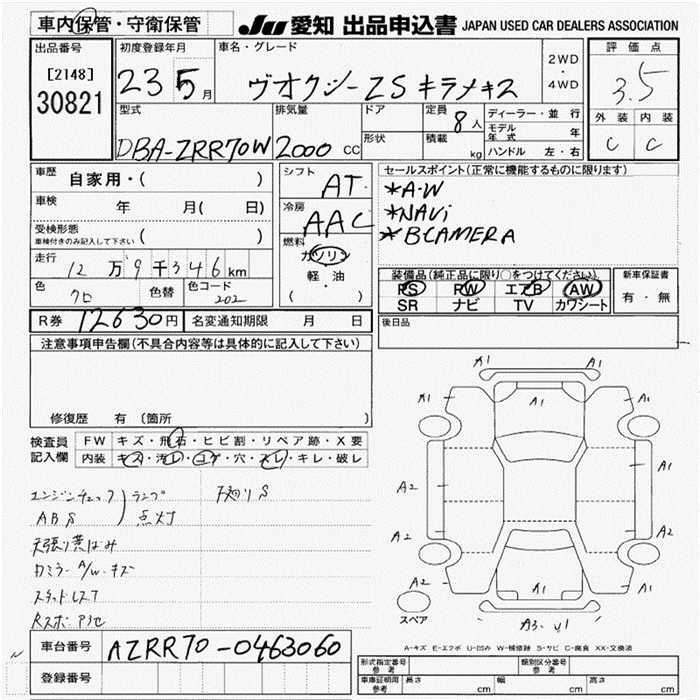 車内保管・守衛保管 JU 愛知 出品申込書 JAPAN USED CAR DEALERS ASSOCIATION
出品番号 初度登録年月 車名・グレード 2WD・4WD 評価点
[2148] 30821 23 5月 ヴオクシー ZS キラメキ2 3.5
型式 排気量 ドア 定員 8人 ディーラー・並行 外装 内装
DBA-ZRR70W 2000 CC 形状 積載 kg モデル年式 年 C C
ハンドル 左・右
車歴 自家用・( ) シフト AT セールスポイント(正常に機能するものに限ります)
車検 年 月( 日) 冷房 AAC *A・W
受検形態 車検付きのみ記入して下さい ( ) *NAVi
燃料 ガソリン *BCAMERA
走行 12万9千346km 軽・油 ( )
装備品(純正品に限り○をつけてください。) 新車保証書
色 クロ 色替 色コード 202 PS PW エアB AW 有・無
SR ナビ TV カワシート
R券 12630円 名変通知期限 月 日 後日品
注意事項申告欄(不具合内容等は具体的に記入して下さい)
修復歴 有 (箇所
検査員記入欄 FW キズ・飛石・ヒビ割・リペア跡・X要
内装 キズ・汚レ・コゲ・穴・スレ・キレ・破レ
エンジンチェック ランプ 下廻りS
ABS 点灯
天張り黄ばみ
カミラー A/W・キズ
スタッドレス7
A1 A1
A1 A1 A1
A1
A2
A1
A2
A2 A1 A2
スペア A3・U1
A-キズ E-エクボ U-凹み W-補修跡 S-サビ C-腐食 XX-交換済
車台番号 AZRR70-0463060
登録番号
形式指定番号 参考 類別区分番号 参考
車庫証明用 参考 長さ cm 幅 cm 高さ cm